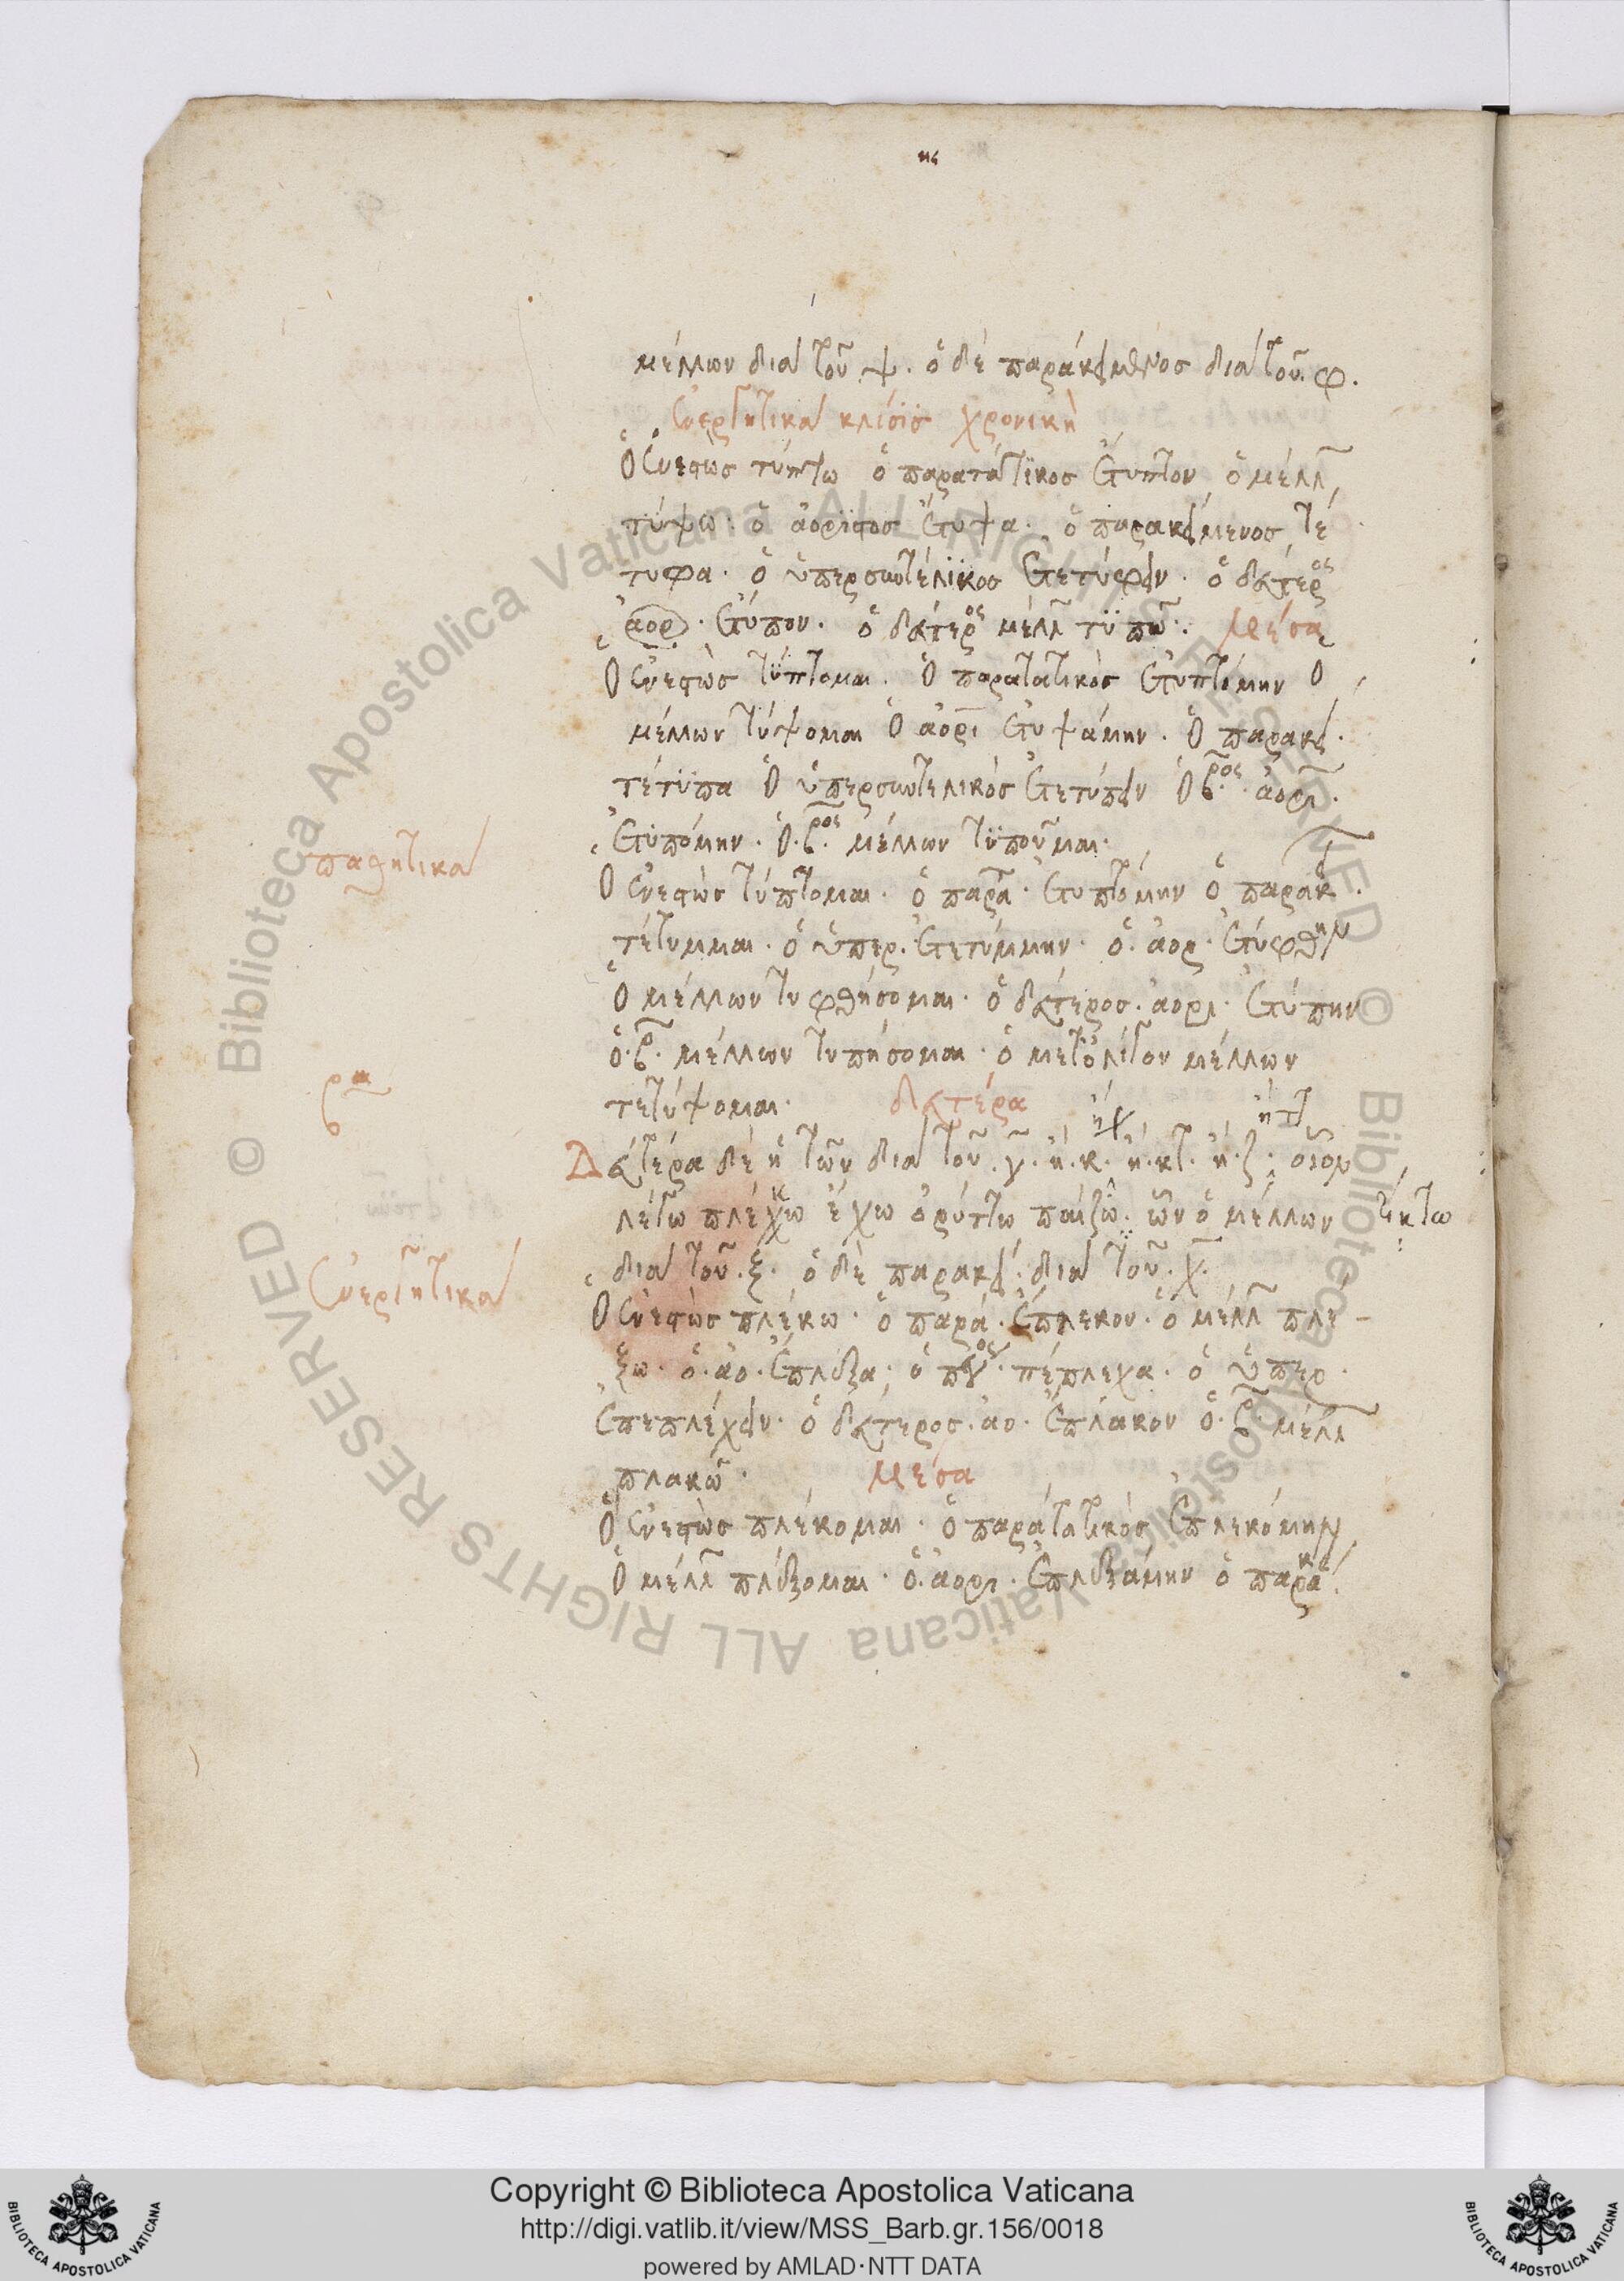 μέλλων διὰ τοῦ ψ. ὁ δὲ παρακείμενος διὰ τοῦ. φ.
ἐνεργητικὰ κλίσις χρονικὴ
Ὁ ἐνεστὼς τύπτω ὁ παρατατικος ἔτυπτον ὁ μέλλ
τύψω· ὁ ἀόριστος ἔτυψα· ὁ παρακείμενος τέ
τυφα· ὁ ὑπερσυντέλικος ἐτετύφειν· ὁ δεύτερος
ἀορ· ἔτυπον· ὁ δεύτερος μέλλ τυπῶ· Μέσα
Ὁ ἐνεστὼς τύπτομαι. Ὁ παρατατικὸς ἐτυπτόμην Ὁ
μέλλων τύψομαι Ὁ ἀορι ἐτυψάμην. Ὁ παρακει.
τέτυπα Ὁ ὑπερσυντελικὸς ἐτετύπειν Ὁ β.ρος ἀορι.
ἐτυπόμην. Ὁ.β.ρος μέλλων τυποῦμαι.
παθητικὰ
Ὁ ἐνεστὼς τύπτομαι. ὁ παρα. ἐτυπτόμην ὁ παρακει.
τέτυμμαι. ὁ ὑπερ. ἐτετύμμην. ὁ. ἀορ. ἐτύφθην
Ὁ μέλλων τυφθήσομαι. ὁ δεύτερος. ἀορι. ἐτύπην
ὁ.β. μέλλων τυπήσομαι. ὁ μετ' ὀλίγον μέλλων
τετύψομαι. δευτέρα
Δευτέρα δὲ ἡ τῶν διὰ τοῦ. γ. ἢ. κ. ἢ χ ἢ. κτ. ἢ ττ ἢ. ζ. οἷον
λέγω πλέκω ἔχω ὀρύττω παίζω. ὧν ὁ μέλλων τίκτω
διὰ τοῦ. ξ. ὁ δὲ παρακει. διὰ τοῦ. χ.
ἐνεργητικὰ
Ὁ ἐνεστὼς πλέκω. ὁ παρά. ἔπλεκον. ὁ μέλλ πλέ-
ξω. ὁ. ἀο. ἔπλεξα. ὁ πέπλεχα. ὁ ὑπερ.
ἐπεπλέχειν. ὁ δεύτερος. ἀο. ἔπλακον ὁ.β. μέλλ
πλακῶ. Μέσα
Ὁ ἐνεστὼς πλέκομαι. ὁ παρατατικὸς ἐπλεκόμην
Ὁ μέλλ πλέξομαι. ὁ. ἀορι. ἐπλεξάμην ὁ παρακ
Copyright © Biblioteca Apostolica Vaticana
http://digi.vatlib.it/view/MSS_Barb.gr.156/0018
powered by AMLAD·NTT DATA
BIBLIOTECA APOSTOLICA VATICANA
BIBLIOTECA APOSTOLICA VATICANA
© Biblioteca Apostolica Vaticana ALL RIGHTS RESERVED © Biblioteca Apostolica Vaticana ALL RIGHTS RESERVED